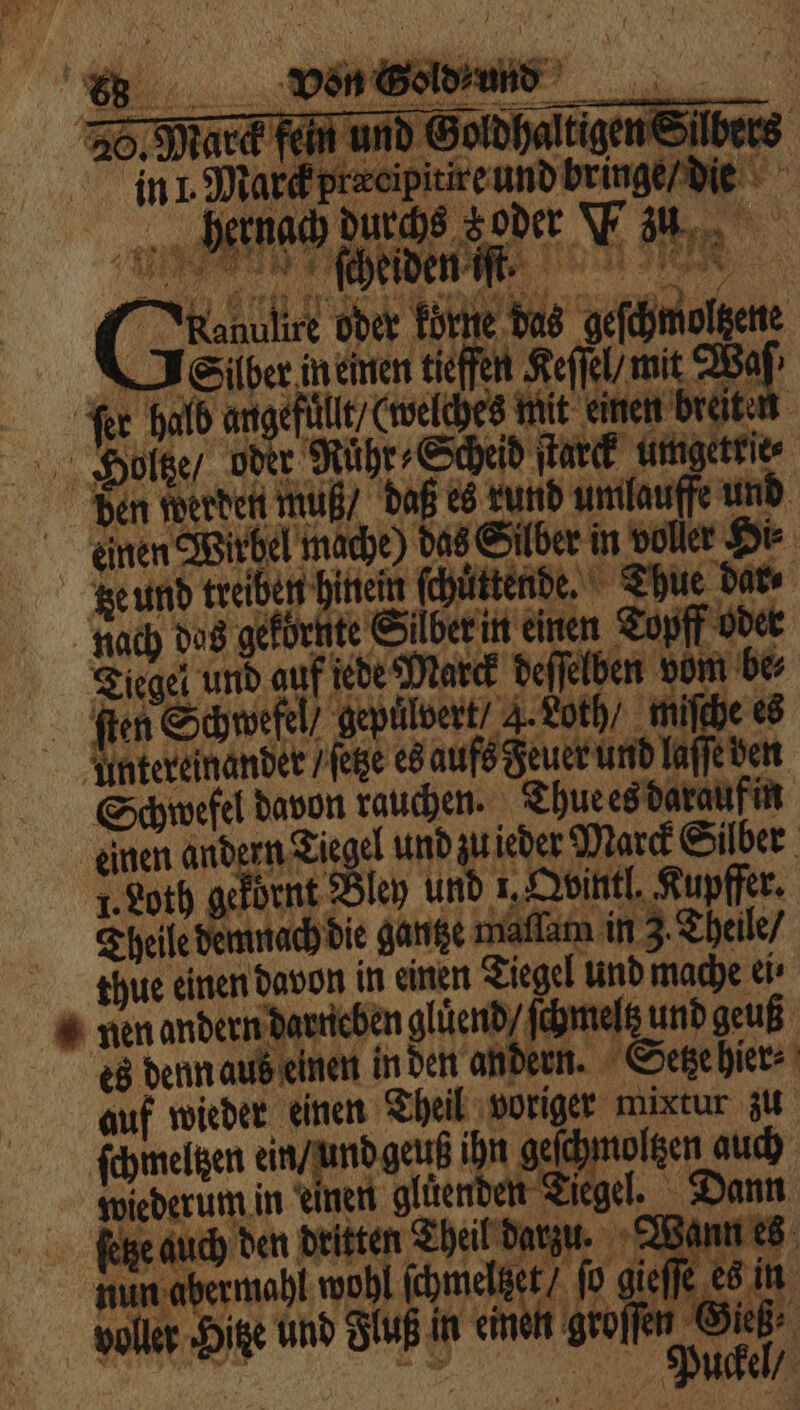 68 Von Gold⸗und
20. Marck fein und Goldhaltigen Silbers
in 1. Marck præcipitire und bringe/ die
hernach durchs ♁ oder 🜅 zu
ſcheiden iſt.
GRanulire oder koͤrne das geſchmoltzene
Silber in einen tieffen Keſſel/ mit Waſ⸗
ſer halb angefuͤllt/ (welches mit einen breiten
Holtze/ oder Ruͤhr⸗Scheid ſtarck umgetrie⸗
ben werden muß/ daß es rund umlauffe und
einen Wirbel mache) das Silber in voller Hi⸗
tze und treiben hinein ſchuͤttende. Thue dar⸗
nach das gekoͤrnte Silber in einen Topff oder
Tiegel und auf iede Marck deſſelben vom be⸗
ſten Schwefel/ gepuͤlvert/ 4. Loth/ miſche es
untereinander / ſetze es aufs Feuer und laſſe den
Schwefel davon rauchen. Thue es darauf in
einen andern Tiegel und zu ieder Marck Silber
1. Loth gekoͤrnt Bley und 1. Qvintl. Kupffer.
Theile demnach die gantze maſſam in 3. Theile/
thue einen davon in einen Tiegel und mache ei⸗
nen andern darneben gluͤend/ ſchmeltz und geuß
es denn aus einen in den andern. Setze hier⸗
auf wieder einen Theil voriger mixtur zu
ſchmeltzen ein/ und geuß ihn geſchmoltzen auch
wiederum in einen gluͤenden Tiegel. Dann
ſetze auch den dritten Theil darzu. Wann es
nun abermahl wohl ſchmeltzet/ ſo gieſſe es in
voller Hitze und Fluß in einen groſſen Gieß⸗
Puckel/